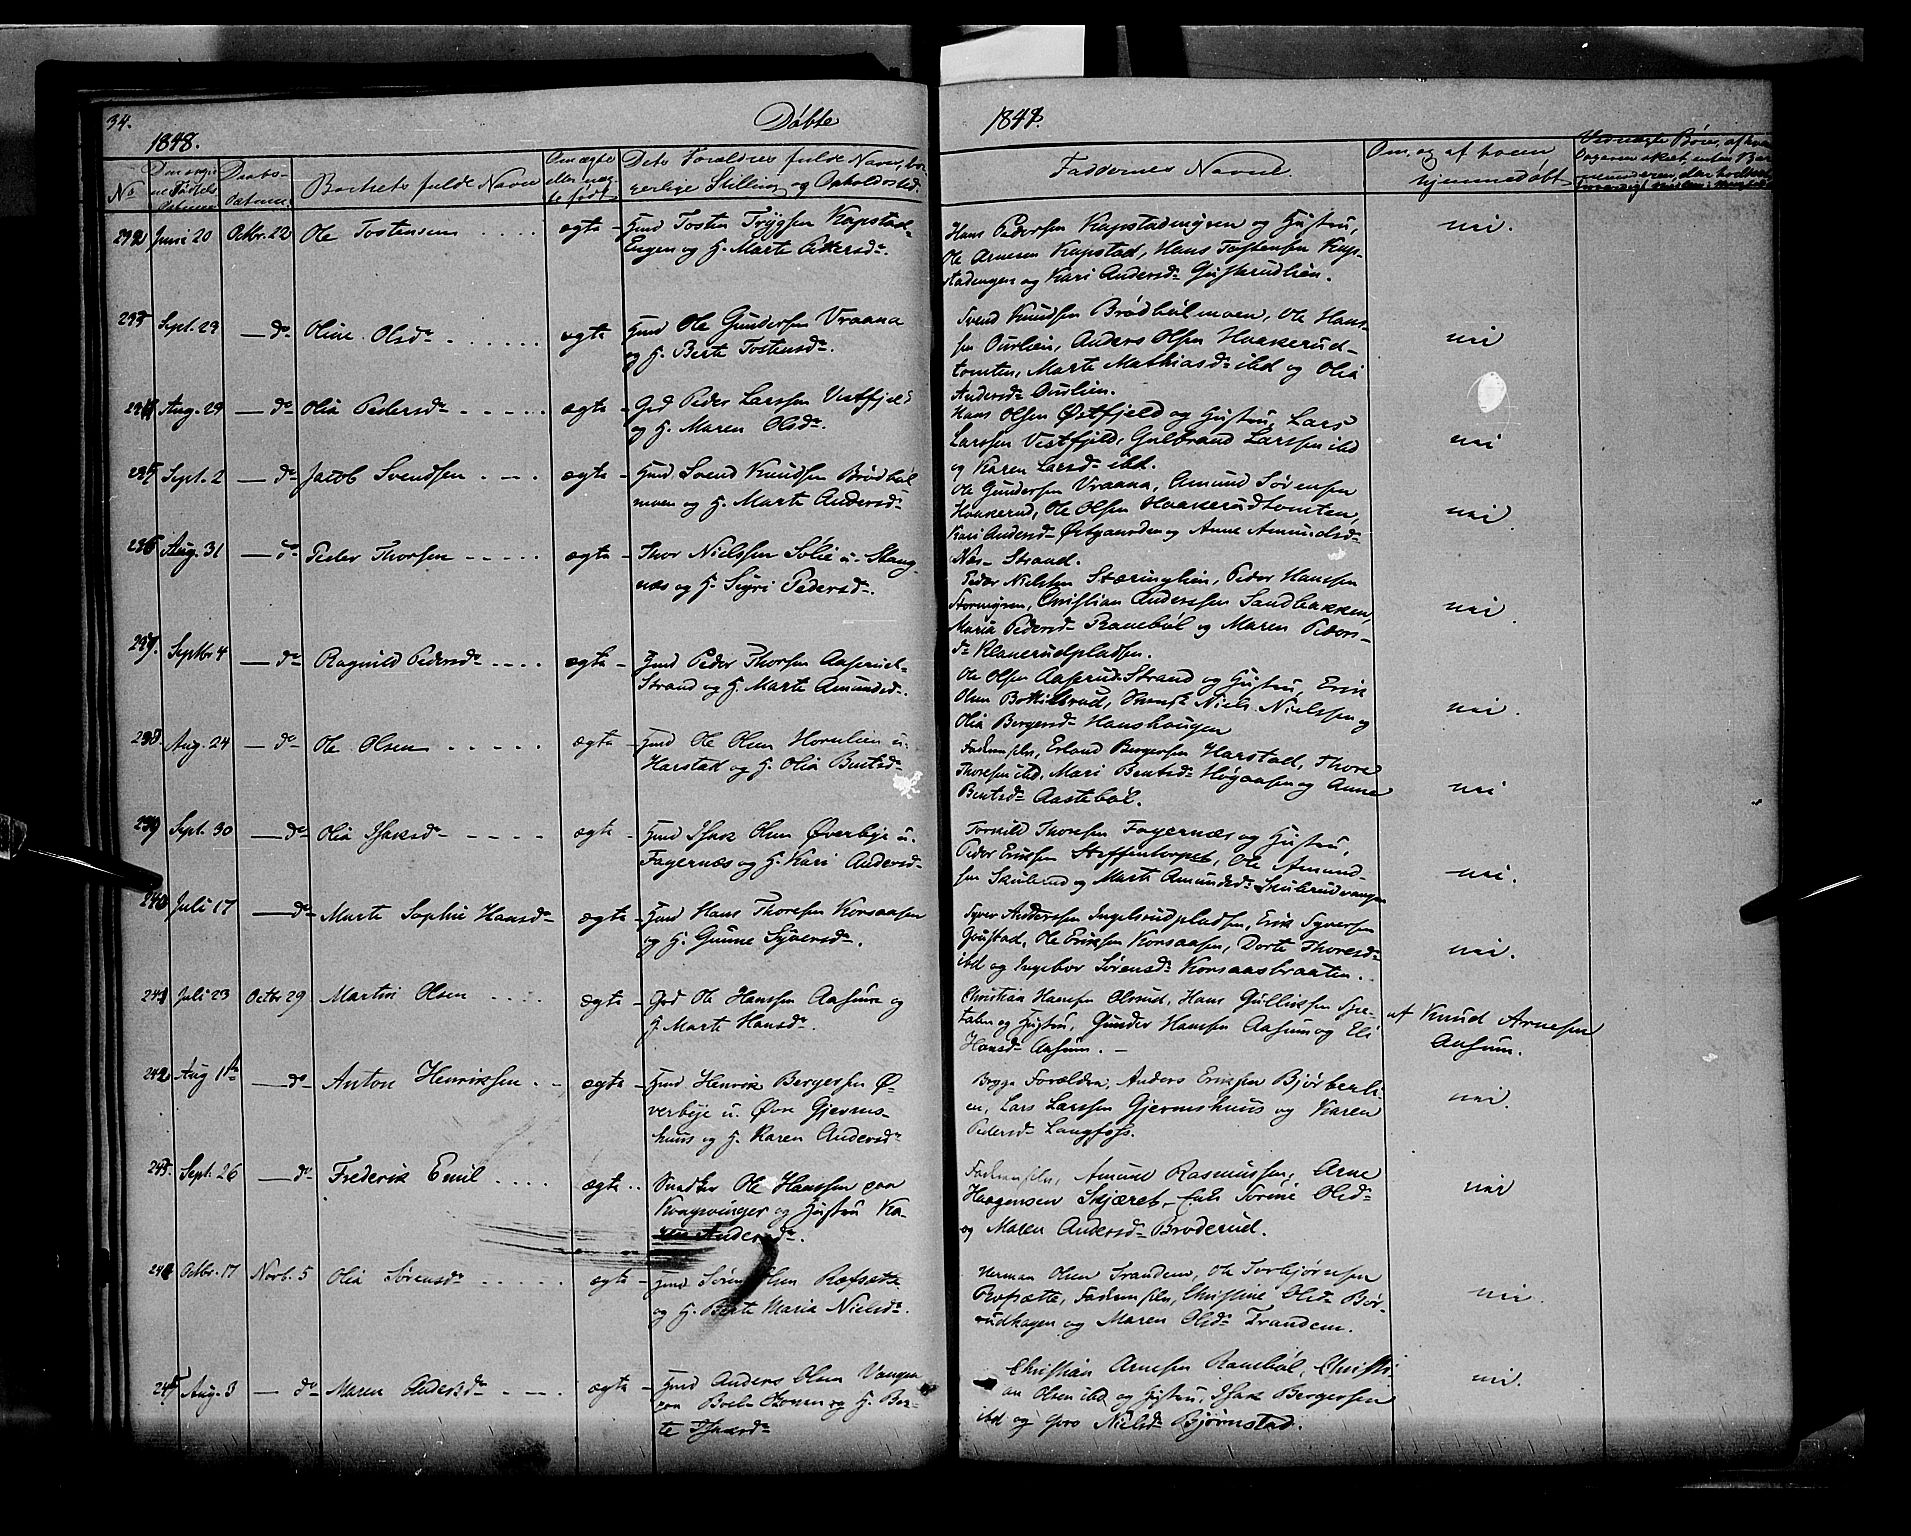 34.
1848.
Døbte
1848.
No
Daabs-
Datum
Barnets fulde Navn
Om ægte
eller uæg
te født
Dets Forældres fulde Navn, bor
gerlige Stilling og Opholdssted
Faddernes Navne
Om, og af hvem
hjemmedøbt
232 Juni 20 Octbr. 22 Ole Tostensen ægte Hmd Tosten Trygsen Kapstad-
Engen og H. Marte Pedersd.
Hans Pedersen Kapstadengen og Hustru,
Ole Arnesen Kapstad, Hans Tostensen Kap-
stadengen og Kari Andersd.
nei.
233 Sept. 29 do Oline Olsd. ægte Hmd Ole Gundersen Vraana
og H. Berte Tostensd.
Svend Knudsen Brødbølmoen, Ole Han-
sen Ourlien, Anders Olsen Haakerud-
tomten, Marte Mathiasd. ibd og Olia
Andersd. Ourlien.
nei
234 Aug. 29 do Olia Pedersd. ægte Grd Peder Larssen Vestfjeld
og H. Maren Olsd.
Hans Olsen Østfjeld og Hustru, Lars
Larssen Vestfjeld, Gulbrand Larssen ibd
og Karen Larsd. ibd.
nei
235 Sept. 2 do Jacob Svendsen ægte Hmd Svend Knudsen Brødbøl
moen og H. Marte Andersd.
Ole Gundersen Vraana, Amund Sørensen
Haakerud, Ole Olsen Haakerudtomten,
Kari Andersd. og Anne Amundsd.
Strand.
nei.
236 Aug. 31 do Peder Thorsen ægte Thor Nielssen Sølie u. Stang-
næs og H. Sigri Pedersd.
Peder Nielsen Stæringlien, Peder Hanssen
Stormyren, Christian Anderssen Sandbakken,
Maria Pedersd. Ranebøl og Maren Peders-
d. Klanerudpladsen.
nei.
237. Septbr 4 do Ragnild Pedersd. ægte Hmd Peder Thorsen Aaserud-
Strand og H. Marte Amundsd.
Ole Olsen Aaserud-Strand og Hustru, Erik
Olsen Niels Nielssen og
Olia Bergersd. Hanshaugen
nei.
238. Aug. 24 do Ole Olsen ægte Hmd Ole Olsen Hornlien u.
Harstad og H. Olia Bentsd.
Faderen selv, Erland Bergersen Harstad, Thore
Thoresen ibd, Mari Bentsd. Høgaasen og Anne
Bentsd. Aastebøl.
nei
239 Sept. 30 do Olia Isaksd. ægte Hmd Isak Olsen Øverbye u.
Fagernæs og H. Kari Andersd.
Torkild Thoresen Fagernæs og Hustru,
Peder Eriksen Steffentorpet, Ole Amund-
sen Skubrud og Marte Amundsd. Skubrudvangen
nei.
240 Juli 17 do Marte Sophie Hansd. ægte Hmd Hans Thoresen Korsaasen
og H. Gunne Syversd.
Syver Anderssen Ingelsrudpladsen, Erik Syversen
Goustad, Ole Eriksen Korsaasen, Dorte Thoresd.
ibd og Ingebor Sørensd. Korsaasbraaten.
nei.
241 Juli 23 Octbr 29 Martin Olsen ægte Grd Ole Hanssen Aasum og
H. Marte Hansd.
Christian Hansen Olsrud, Hans Gulliksen Spe-
talen og Hustru, Gunder Hanssen Aasum og Eli
Hansd. Aasum.
af Knud Arnesen
Aasum.
242 Aug do Anton Henriksen ægte Hmd Henrik Bergersen Ø-
verbye u. Øvre Gjerms-
huus og H. Karen Andersd.
Begge Forældre, Anders Eriksen Bjørberli-
en, Lars Larssen Gjermshuus og Karen
Pedersd. Langfoss.
nei.
243. Sept. 26 do Frederik Emil ægte Snedker Ole Hanssen paa
Kongsvinger og Hustru Ka-
ren Andersd.
Faderen selv, Amund Rasmussen, Arne
Haagensen Skjæret, Sorine Olsd.
og Maren Andersd. Broderud.
nei
244 Octbr. 17 Novb. 5 Olia Sørensd. ægte Hmd Søren Olsen Ræfsætte
og H. Berte Maria Nielsd.
Herman Olsen Trandem, Ole Torbjørnsen
Ræfsætte, Faderen selv, Christine Olsd. Bør-
rudhagen og Maren Olsd. Trandem.
nei.
245 Aug. 3 do Maren Andersd. ægte Hmd Anders Olsen Vangen
paa og H. Ber-
te Isaksd.
Christian Arnesen Ranebøl, Christi-
an Olsen ibd og Hustru, Isak Bergersen
ibd og Nielsd. Bjørnstad.
nei.